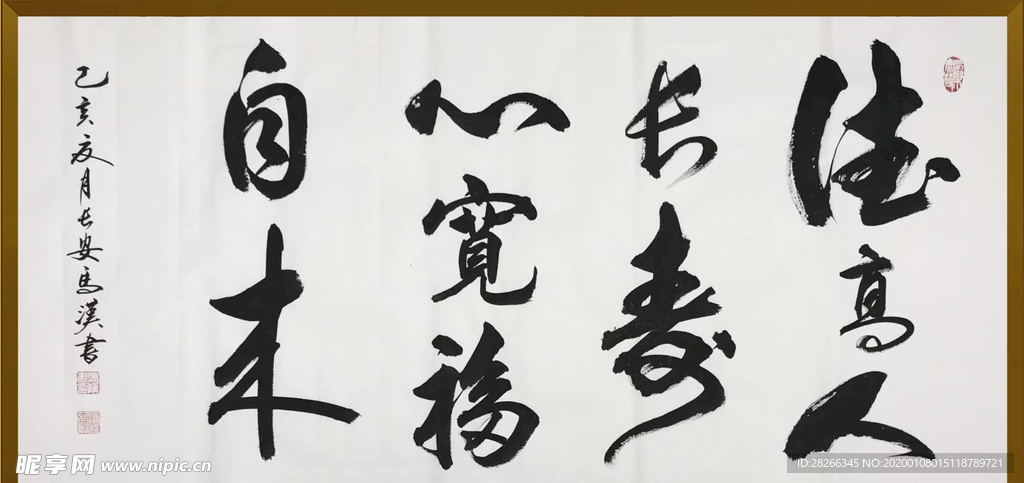 德高人
长寿
心宽福
自来
乙亥夏月长安马汉书
昵享网 www.nipic.cn
ID:28266345 NO:20200108015118789721